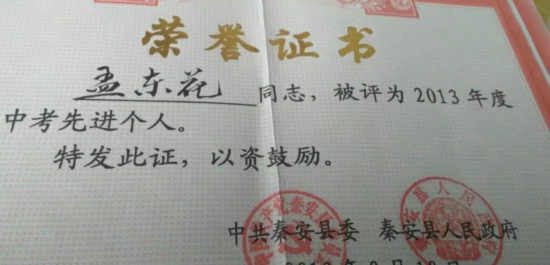 荣誉证书
孟东花 同志，被评为2013年度
中考先进个人。
特发此证，以资鼓励。
中共秦安县委 秦安县人民政府